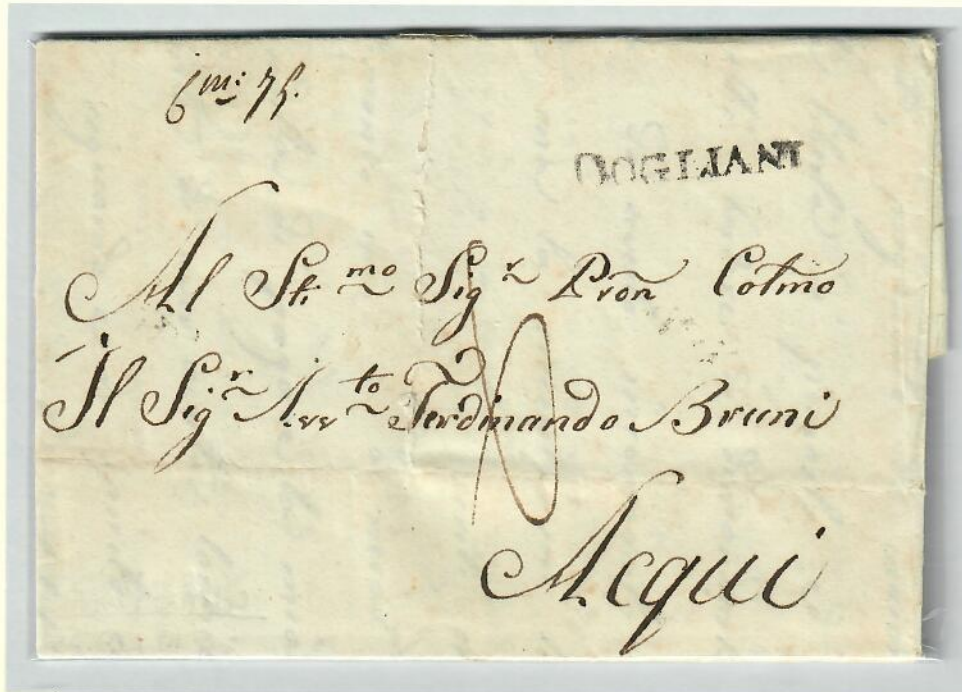 6 mi: 75.
DOGLIANI
Al St. mo Sig r Pron Colmo
Il Sig r Avv to Ferdinando Bruni
Acqui